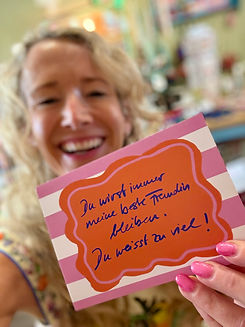 Du wirst immer
meine beste Freundin
bleiben.
Du weisst zu viel!